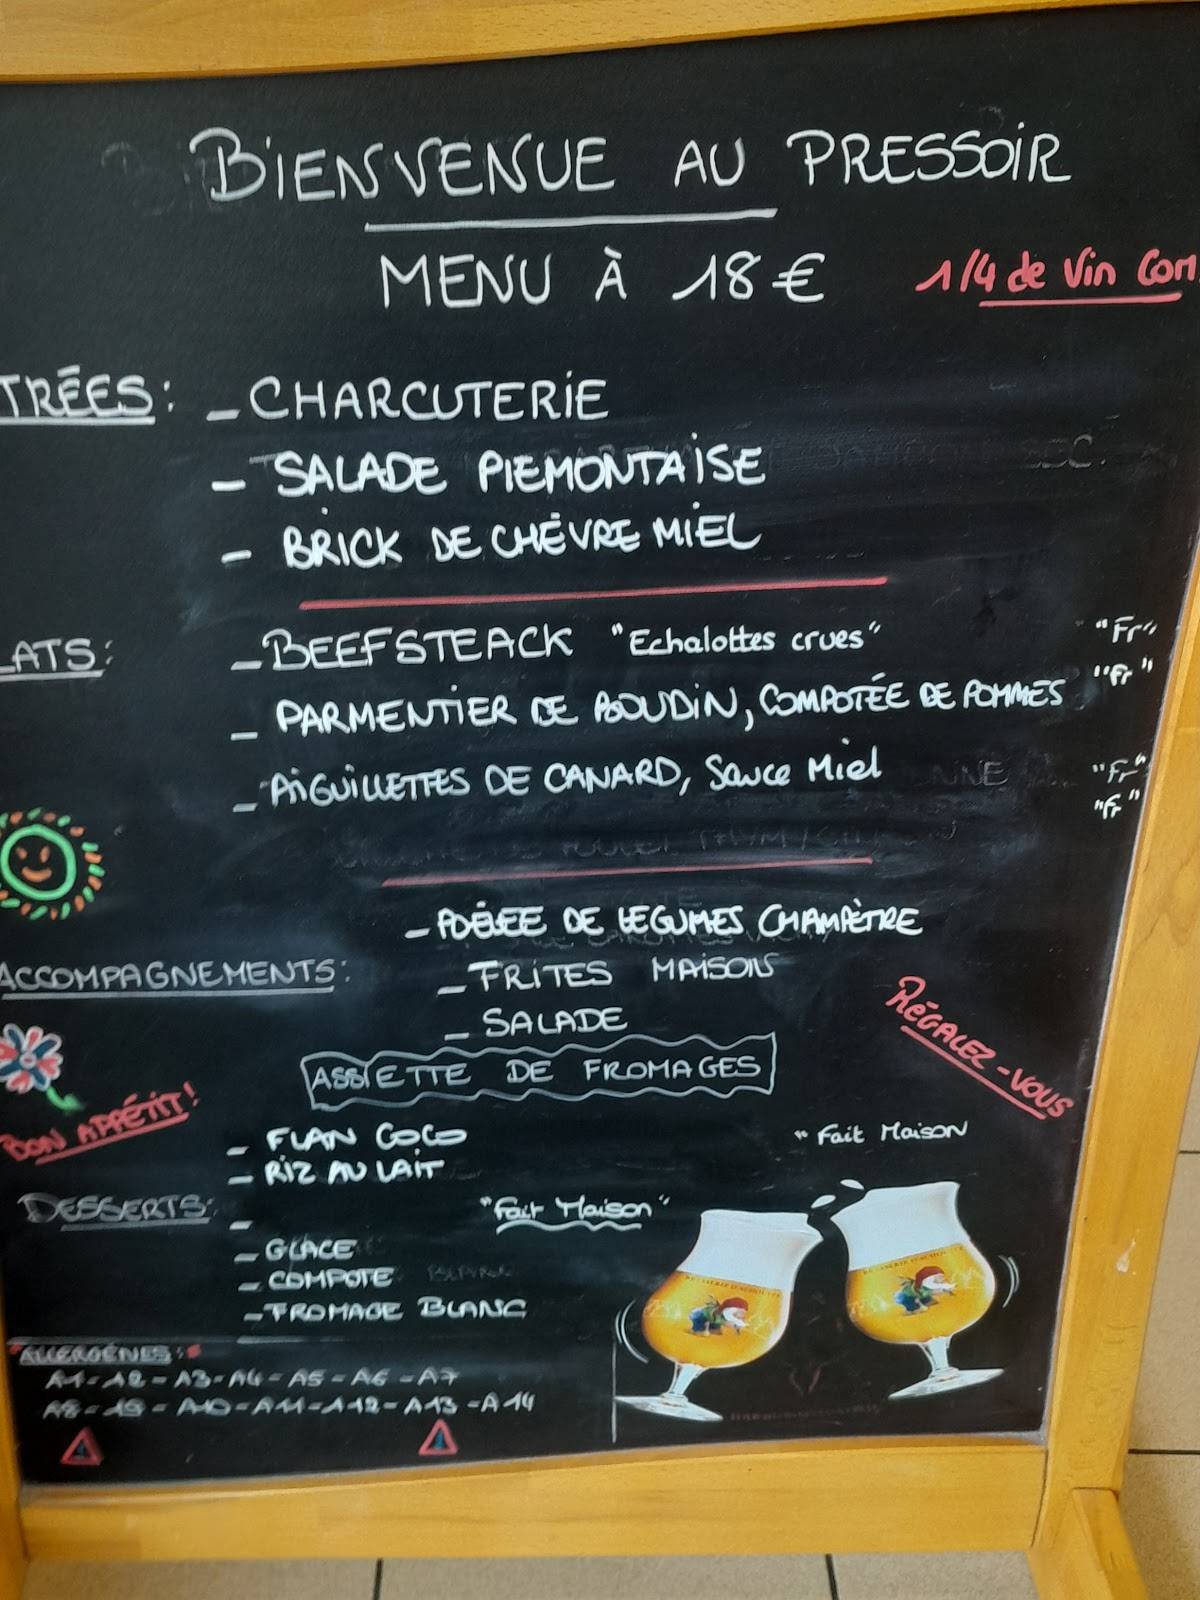 BIENVENUE AU PRESSOIR
MENU À 18€ 1/4 de Vin Com
TRÉES: - CHARCUTERIE
- SALADE PIEMONTAISE
- BRICK DE CHÈVRE MIEL
LATS: - BEEFSTEACK "Echalottes crues" "Fr"
- PARMENTIER DE BOUDIN, COMPOTÉE DE POMMES "Fr"
- AIGUILLETTES DE CANARD, Sauce Miel "Fr"
"Fr"
- POÊLÉE DE LEGUMES CHAMPÈTRE
ACCOMPAGNEMENTS: - FRITES MAISON
- SALADE
RÉGALEZ-VOUS
ASSIETTE DE FROMAGES
BON APPÉTIT!
- FLAN COCO " Fait Maison
- RIZ AU LAIT
DESSERTS: - "Fait Maison"
- GLACE
- COMPOTE
- FROMAGE BLANC
"ALLERGÈNES:"
A1-A2-A3-A4-A5-A6-A7
A8-A9-A10-A11-A12-A13-A14